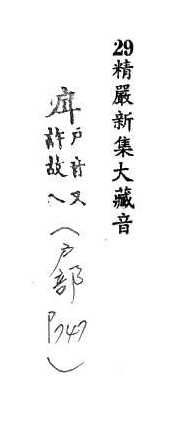 29精嚴新集大藏音
戶音又
許故
(戶部 P747)